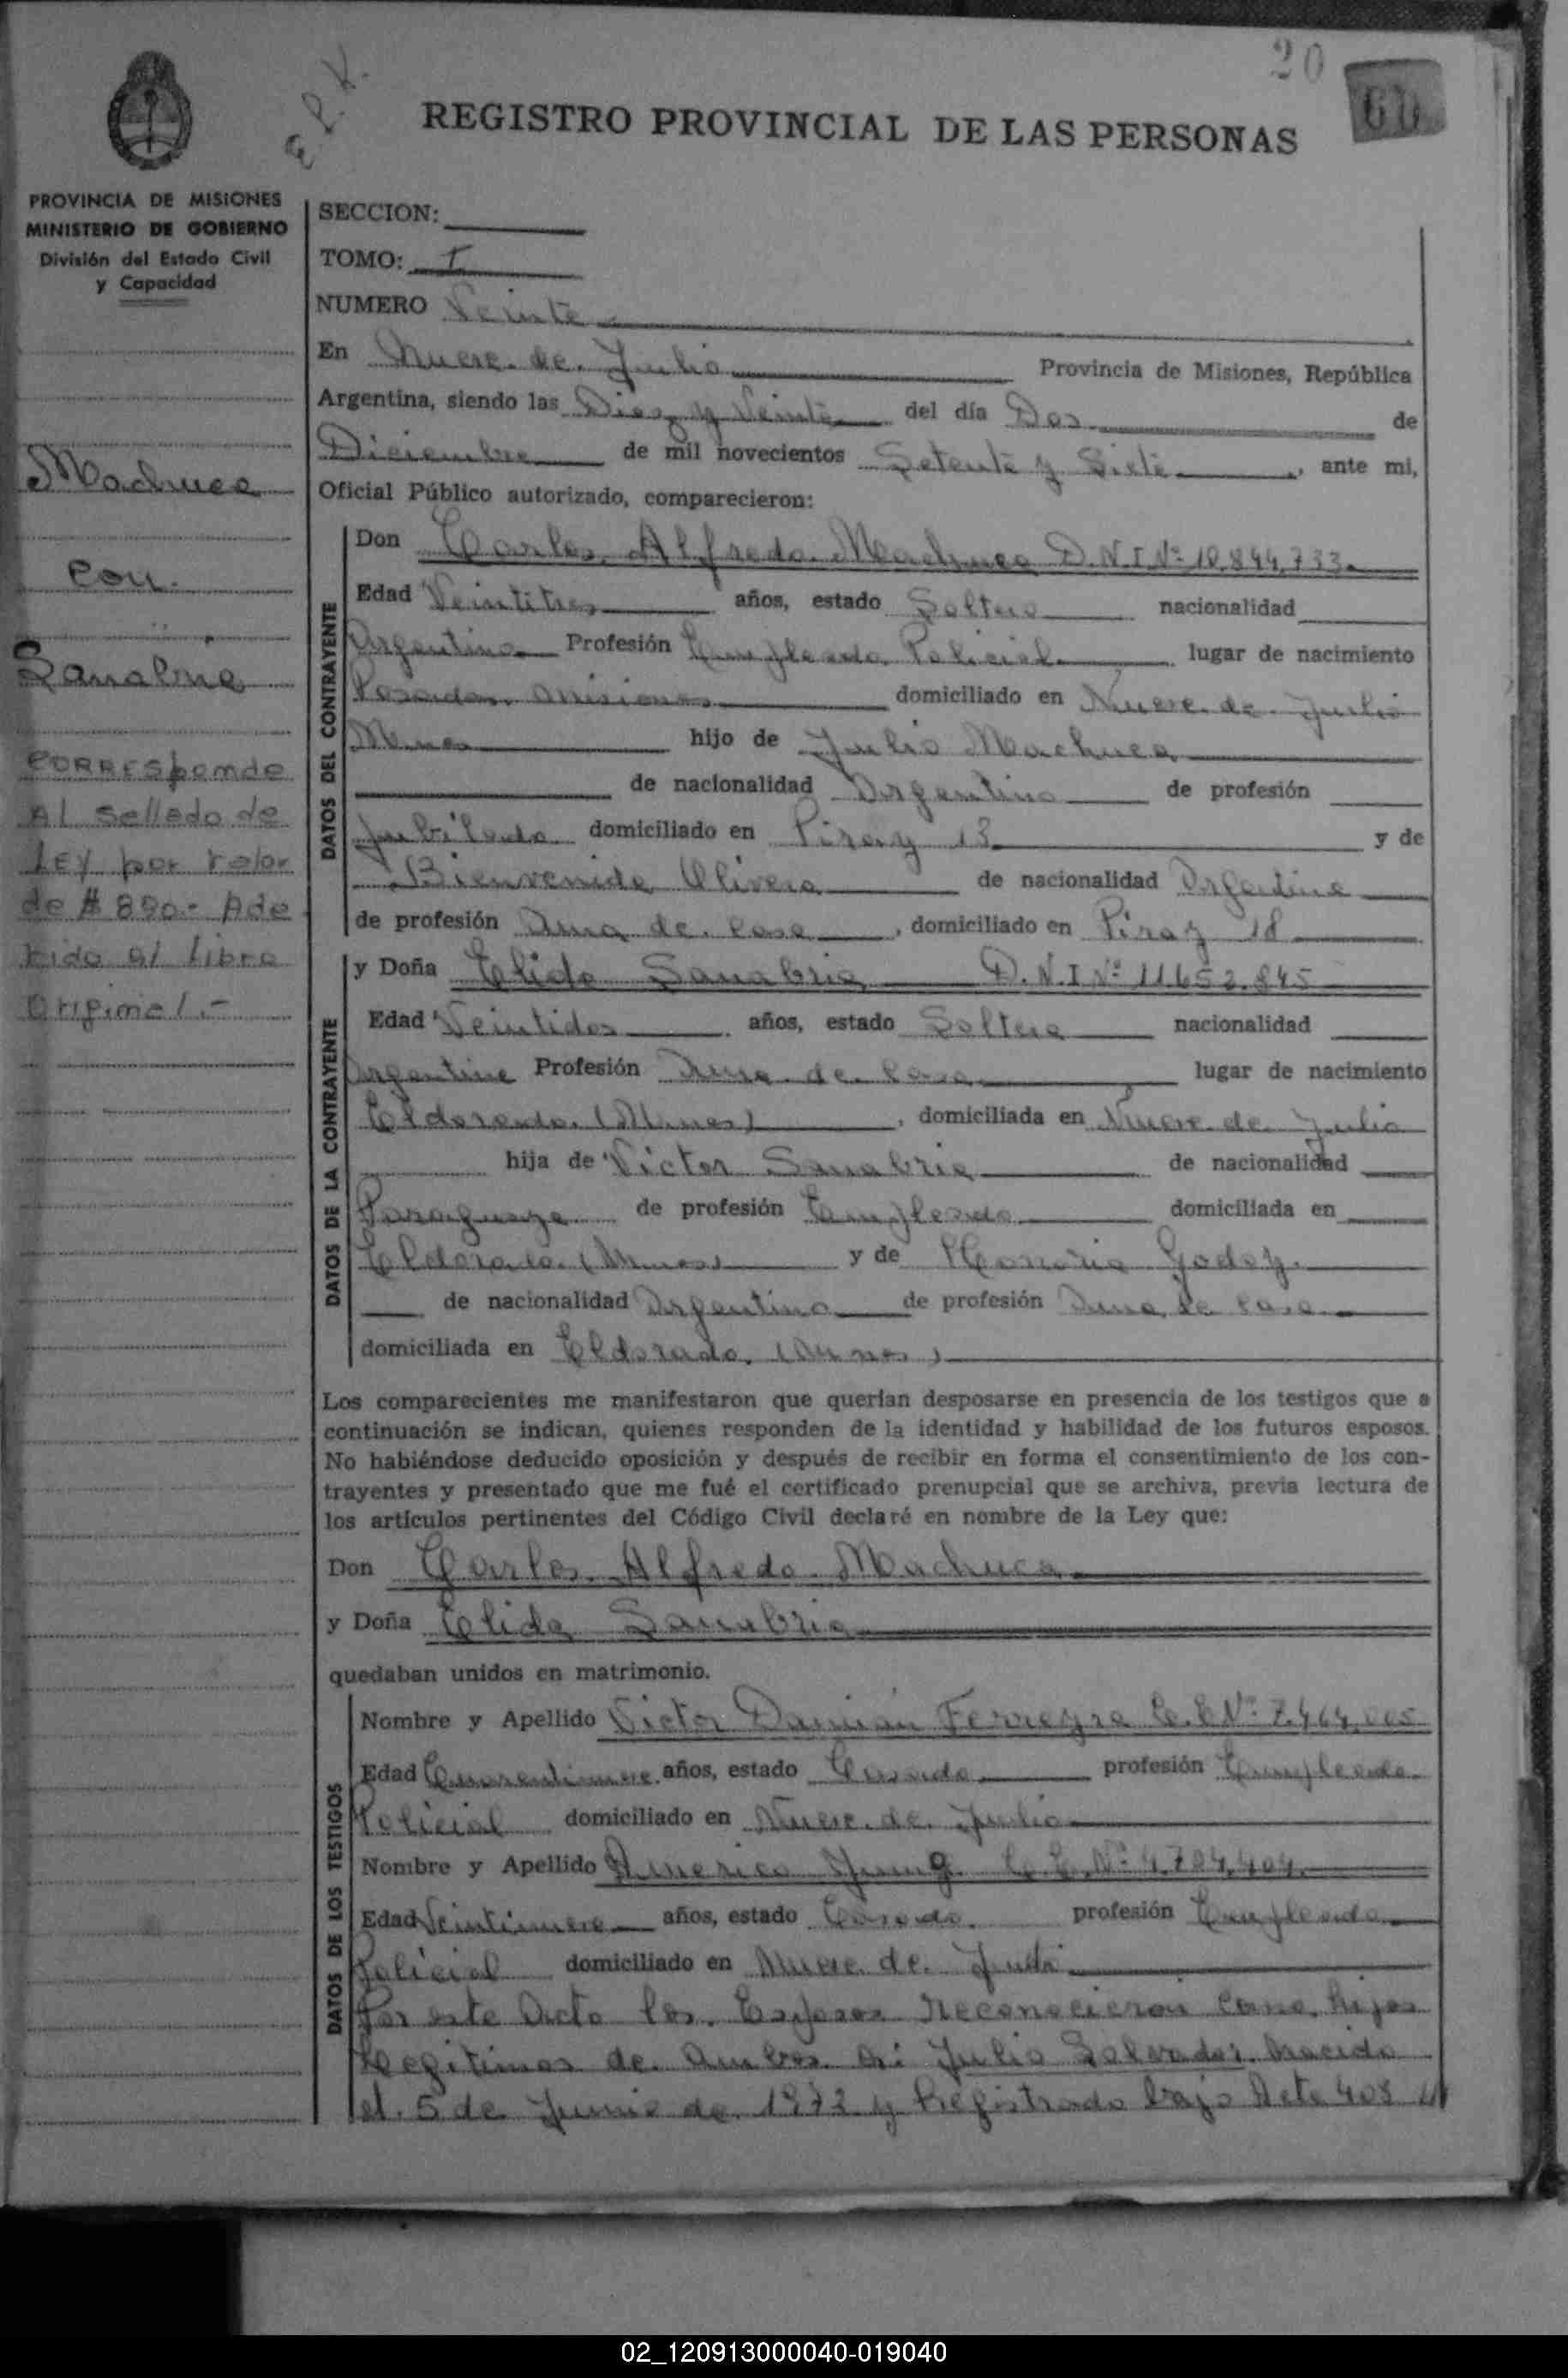 20
60
E.P.V.
REGISTRO PROVINCIAL DE LAS PERSONAS
PROVINCIA DE MISIONES
MINISTERIO DE GOBIERNO
División del Estado Civil
y Capacidad
Machuca
con
Sanabria
Corresponde
Al Sellado de
Ley por valor
de $ 890.- Ade
rido al Libro
Original.-
SECCION:
TOMO: I
NUMERO Veinte
En Nueve de Julio Provincia de Misiones, República
Argentina, siendo las Diez y Veinte del día Dos de
Diciembre de mil novecientos Setenta y Siete, ante mi,
Oficial Público autorizado, comparecieron:
DATOS DEL CONTRAYENTE
Don Carlos Alfredo Machuca D.N.I.Nº 10.844.733
Edad Veintitres años, estado Soltero nacionalidad
Argentino Profesión Empleado Policial lugar de nacimiento
Posadas Misiones domiciliado en Nueve de Julio
Mnes hijo de Julio Machuca
de nacionalidad Argentino de profesión
Jubilado domiciliado en Piray 18 y de
Bienvenida Olivera de nacionalidad Argentina
de profesión Ama de Casa, domiciliado en Piray 18
DATOS DE LA CONTRAYENTE
y Doña Elida Sanabria D.N.I Nº 11.652.845
Edad Veintidos años, estado Soltera nacionalidad
Argentina Profesión Ama de Casa lugar de nacimiento
Eldorado (Mnes), domiciliada en Nueve de Julio
hija de Victor Sanabria de nacionalidad
Paraguaya de profesión Empleado domiciliada en
Eldorado (Mnes) y de Honoria Godoy
de nacionalidad Argentina de profesión Ama de Casa
domiciliada en Eldorado (Mnes)
Los comparecientes me manifestaron que querían desposarse en presencia de los testigos que a
continuación se indican, quienes responden de la identidad y habilidad de los futuros esposos.
No habiéndose deducido oposición y después de recibir en forma el consentimiento de los con-
trayentes y presentado que me fué el certificado prenupcial que se archiva, previa lectura de
los artículos pertinentes del Código Civil declaré en nombre de la Ley que:
Don Carlos Alfredo Machuca
y Doña Elida Sanabria
quedaban unidos en matrimonio.
DATOS DE LOS TESTIGOS
Nombre y Apellido Victor Damián Ferreyra Nº 7.464.005
Edad años, estado Casado profesión Empleado
Policial domiciliado en Nueve de Julio
Nombre y Apellido Americo Nº 4.704.404
Edad Veintinueve años, estado Casado profesión Empleado
Policial domiciliado en Nueve de Julio
Por este Acto los Esposos reconocieron como hijos
Legitimos de Ambos A: Julio Salvador nacido
el 5 de Junio de 1973 y Registrado bajo Acta 403
02_120913000040-019040